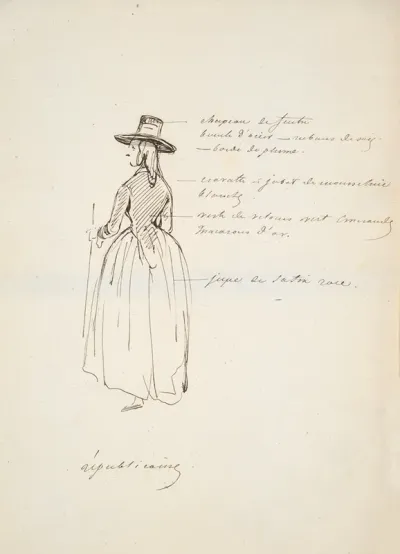 chapeau de feutre
boucle d'acier — rubans de soie
— bordé de plume.
cravatte à jabot de mousseline
blanche
veste de velours vert émeraude
d'or.
jupe de satin rose.
républicaine